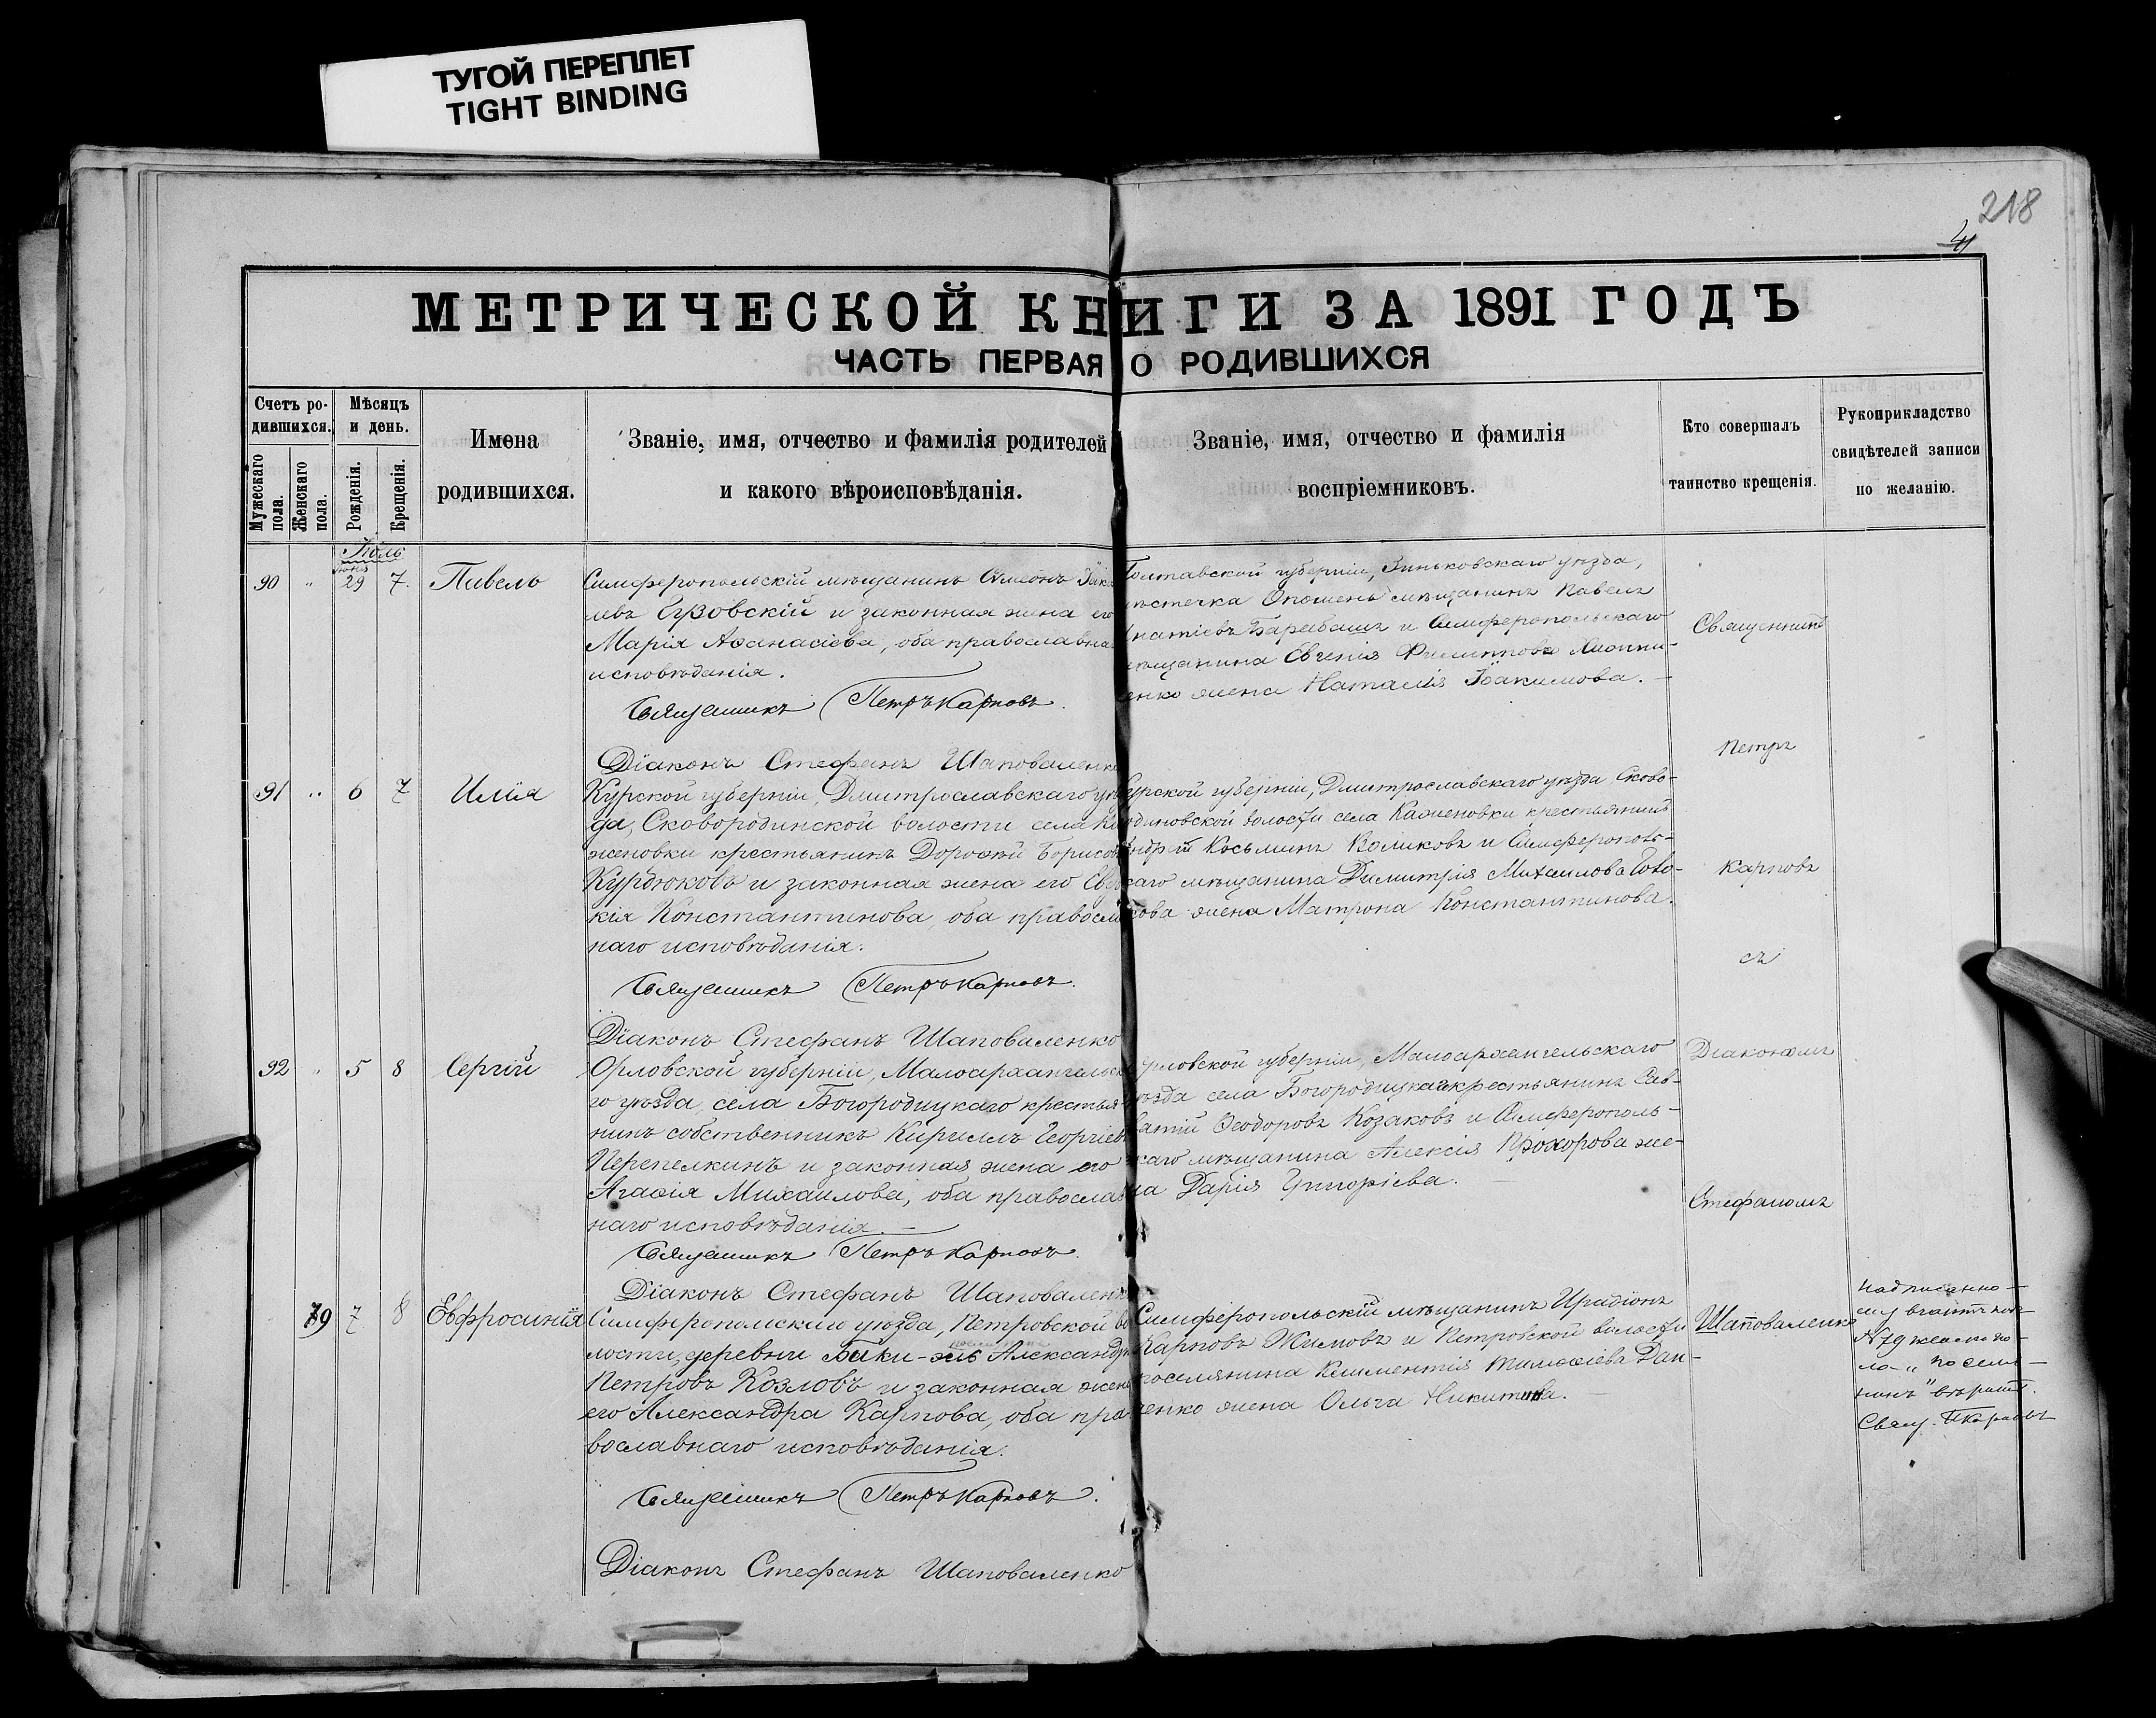 ТУГОЙ ПЕРЕПЛЕТ
TIGHT BINDING
218
МЕТРИЧЕСКОЙ КНИГИ ЗА 1891 ГОДЪ
ЧАСТЬ ПЕРВАЯ О РОДИВШИХСЯ
Счетъ ро-
дившихся.
Мужескаго
пола.
Женскаго
пола.
Мѣсяцъ
и день.
Рожденія.
Крещенія.
Имена
родившихся.
Званіе, имя, отчество и фамилія родителей
и какого вѣроисповѣданія.
Званіе, имя, отчество и фамилія
воспріемниковъ.
Кто совершалъ
таинство крещенія.
Рукоприкладство
свидѣтелей записи
по желанію.
Іюль
Іюня
90 " 29 7. Павелъ
Симферопольскій мѣщанинъ Симеонъ Іако
левъ Бузовскій и законная жена его
Марія Аѳанасіева, оба православна
исповѣданія.
Священникъ Петръ Карповъ.
Діаконъ Стефанъ Шаповаленко
Полтавской губерніи, Зиньковскаго уѣзда,
мѣстечка Опошень мѣщанинъ Павелъ
Игнатіевъ Барабашъ и Симферопольскаго
мѣщанина Евгенія Филиппова
енко жена Наталія Іоакимова. —
91 " 6 7 Илія
Курской губерніи, Дмитрославскаго уѣз
да, Сковородинской волости села Ка
женовки крестьянинъ Дороѳей Борисовъ
Курдюковъ и законная жена его Евдо
кія Константинова, оба правосла
наго исповѣданія.
Священникъ Петръ Карповъ.
Діаконъ Стефанъ Шаповаленко
Курской губерніи, Дмитрославскаго уѣзда Сково-
родиновской волости села Каженовки крестьянинъ
Андрей Косьминъ Воликовъ и Симферополь-
скаго мѣщанина Димитрія Михаилова
кова жена Матрона Константинова.
92 " 5 8 Сергій
Орловской губерніи, Малоархангельска
го уѣзда, села Богородицкаго крестья
нинъ собственникъ Кириллъ Георгіевъ
Перепелкинъ и законная жена его
Агаѳія Михаилова, оба православ
наго исповѣданія. —
Священникъ Петръ Карповъ.
Діаконъ Стефанъ Шаповаленко
Орловской губерніи, Малоархангельскаго
уѣзда села Богородицкаго крестьянинъ Сав-
ватій Ѳеодоровъ Козаковъ и Симферополь-
скаго мѣщанина Алексія Прохорова же-
на Дарія Григоріева. —
79 7 8 Евфросинія
Симферопольскаго уѣзда, Петровской во
лости, деревни Баки-эль Александръ
поселянинъ
Петровъ Козловъ и законная жена
его Александра Карпова, оба пра
вославнаго исповѣданія.
Священникъ Петръ Карповъ.
Діаконъ Стефанъ Шаповаленко
Симферопольскій мѣщанинъ Иродіонъ
Карповъ Жимовъ и Петровской волости
поселянина Климентія Тимоѳіева Дан-
ченко жена Ольга Никитина. —
Священникъ
Петръ
Карповъ
съ
Діакономъ
Стефаномъ
Шаповаленко
Надписанно-
му въ
N 79
ло „поселя-
нинъ" вѣрить.
Свящ. П Карповъ